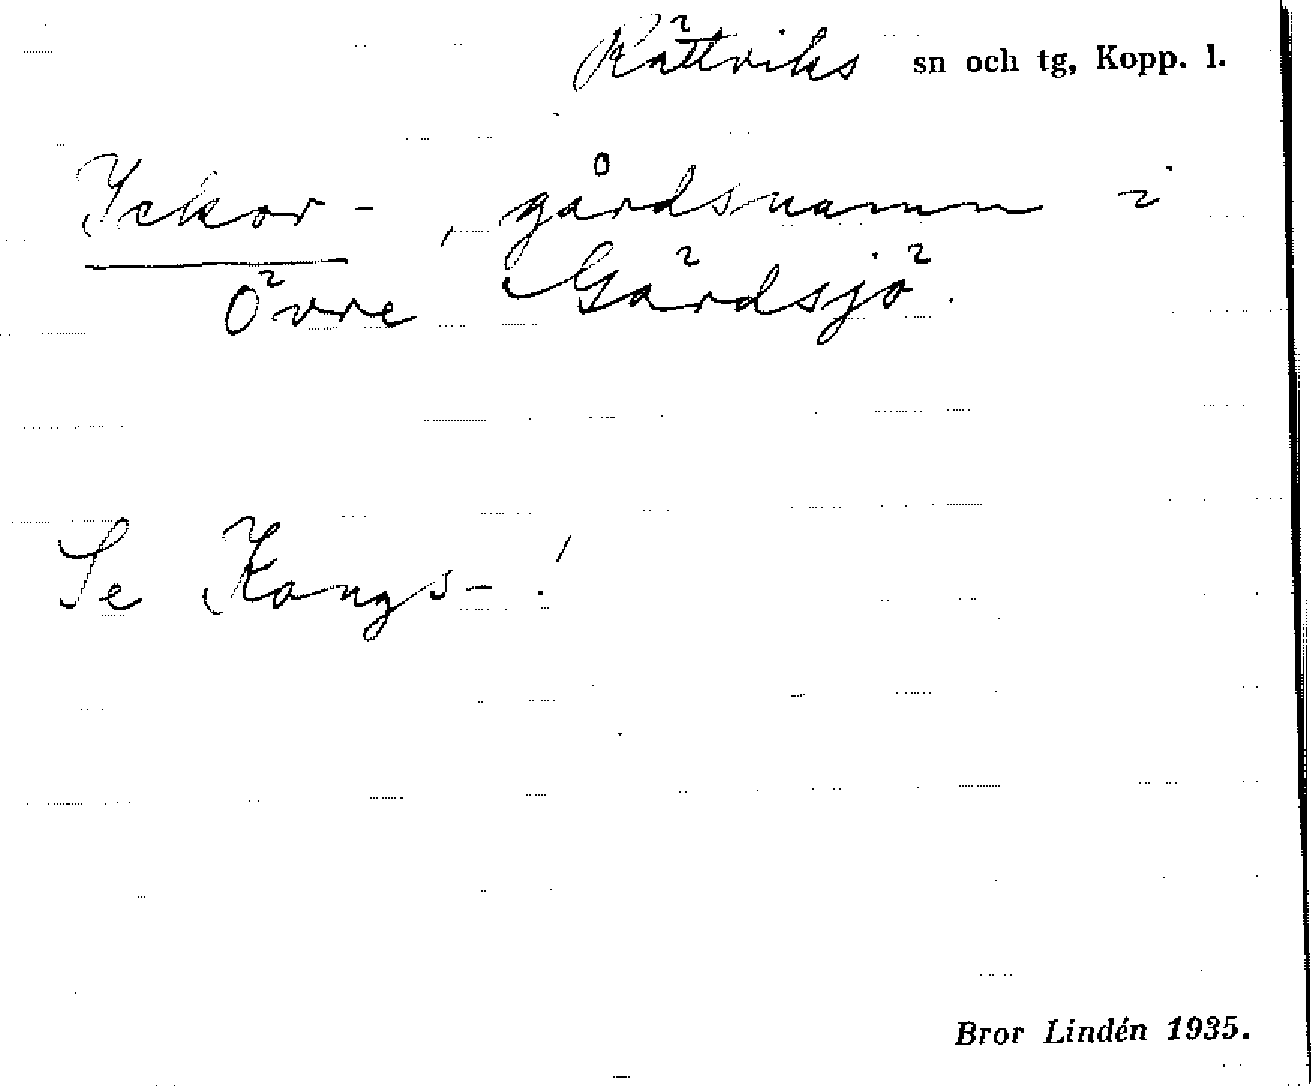 Rättviks sn och tg, Kopp. l.
Ickor-, gårdsnamn i
Övre Gärdsjö.
Se Kongs-!
Bror Lindén 1935.